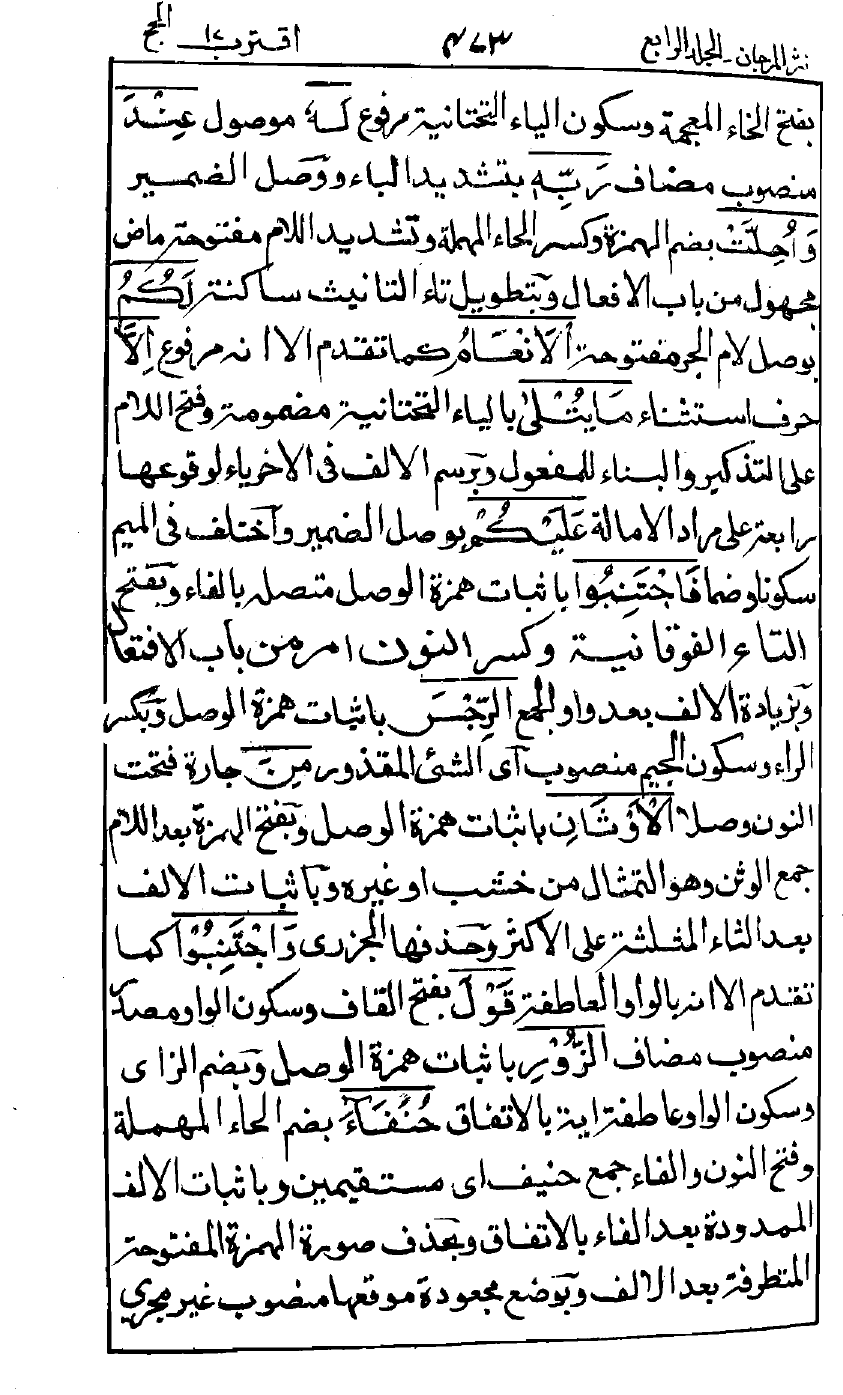 نثر المرجان ـ الجلد الرابع ٤٧٣ اقترب ١٧ الحج
بفتح الخاء المعجمة وسكون الياء التحتانية مرفوع لَهٗ موصول عِنْدَ
منصوب مضاف رَبِّهٖ بتشديد الباء ووصل الضمير
وَأُحِلَّتْ بضم الهمزة وكسر الحاء المهملة وتشديد اللام مفتوحة ماض
مجهول من باب الافعال وبتطويل تاء التانيث ساكنة لَكُمُ
بوصل لام الجر مفتوحة الْاَنْعَامُ كما تقدم الا انه مرفوع اِلَّا
حرف استثناء مَا يُتْلٰى بالياء التحتانية مضمومة وفتح اللام
على التذكير والبناء للمفعول وبرسم الالف فى الاخر ياء لوقوعها
رابعة على مراد الامالة عَلَيْكُمْ بوصل الضمير واختلف فى الميم
سكونا وضما فَاجْتَنِبُوا باثبات همزة الوصل متصلة بالفاء وبفتح
التاء الفوقانية وكسر النون امر من باب الافتعال
وبزيادة الالف بعد واو الجمع الرِّجْسَ باثبات همزة الوصل وبكسر
الراء وسكون الجيم منصوب اى الشئ المقذور مِنَ جارة فتحت
النون وصلا الْاَوْثَانِ باثبات همزة الوصل وبفتح الهمزة بعد اللام
جمع الوثن وهو التمثال من خشب او غيره وباثبات الالف
بعد الثاء المثلثة على الاكثر وحذفها الجزرى وَاجْتَنِبُوْا كما
تقدم الا انه بالواو العاطفة قَوْلَ بفتح القاف وسكون الواو مصدر
منصوب مضاف الزُّوْرِ باثبات همزة الوصل وبضم الزاى
وسكون الواو عاطفة اية بالاتفاق حُنَفَآءَ بضم الحاء المهملة
وفتح النون والفاء جمع حنيف اى مستقيمين وباثبات الالف
الممدودة بعد الفاء بالاتفاق وبحذف صورة الهمزة المفتوحة
المتطرفة بعد الالف وبوضع مجعودة موقعها منصوب غير مجرى